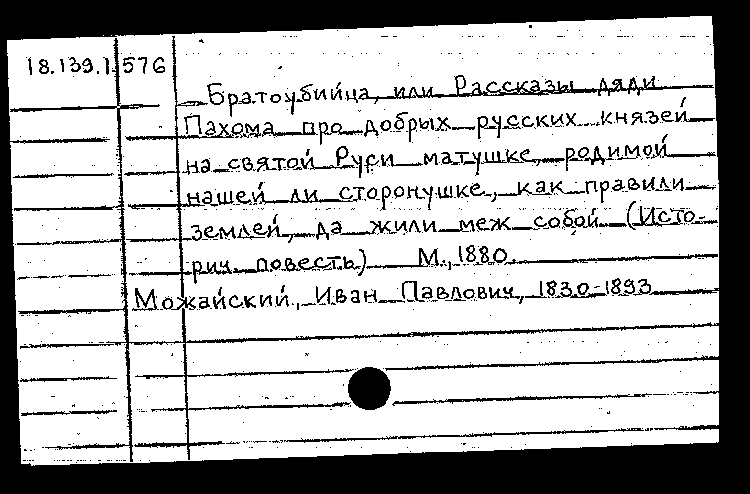 18.139.1.576
Братоубийца, или Рассказы дяди
Пахома про добрых русских князей
на святой Руси матушке, родимой
нашей ли сторонушке, как правили
землей, да жили меж собой (Исто-
рич. повесть) М., 1880.
Можайский, Иван Павлович, 1830-1893